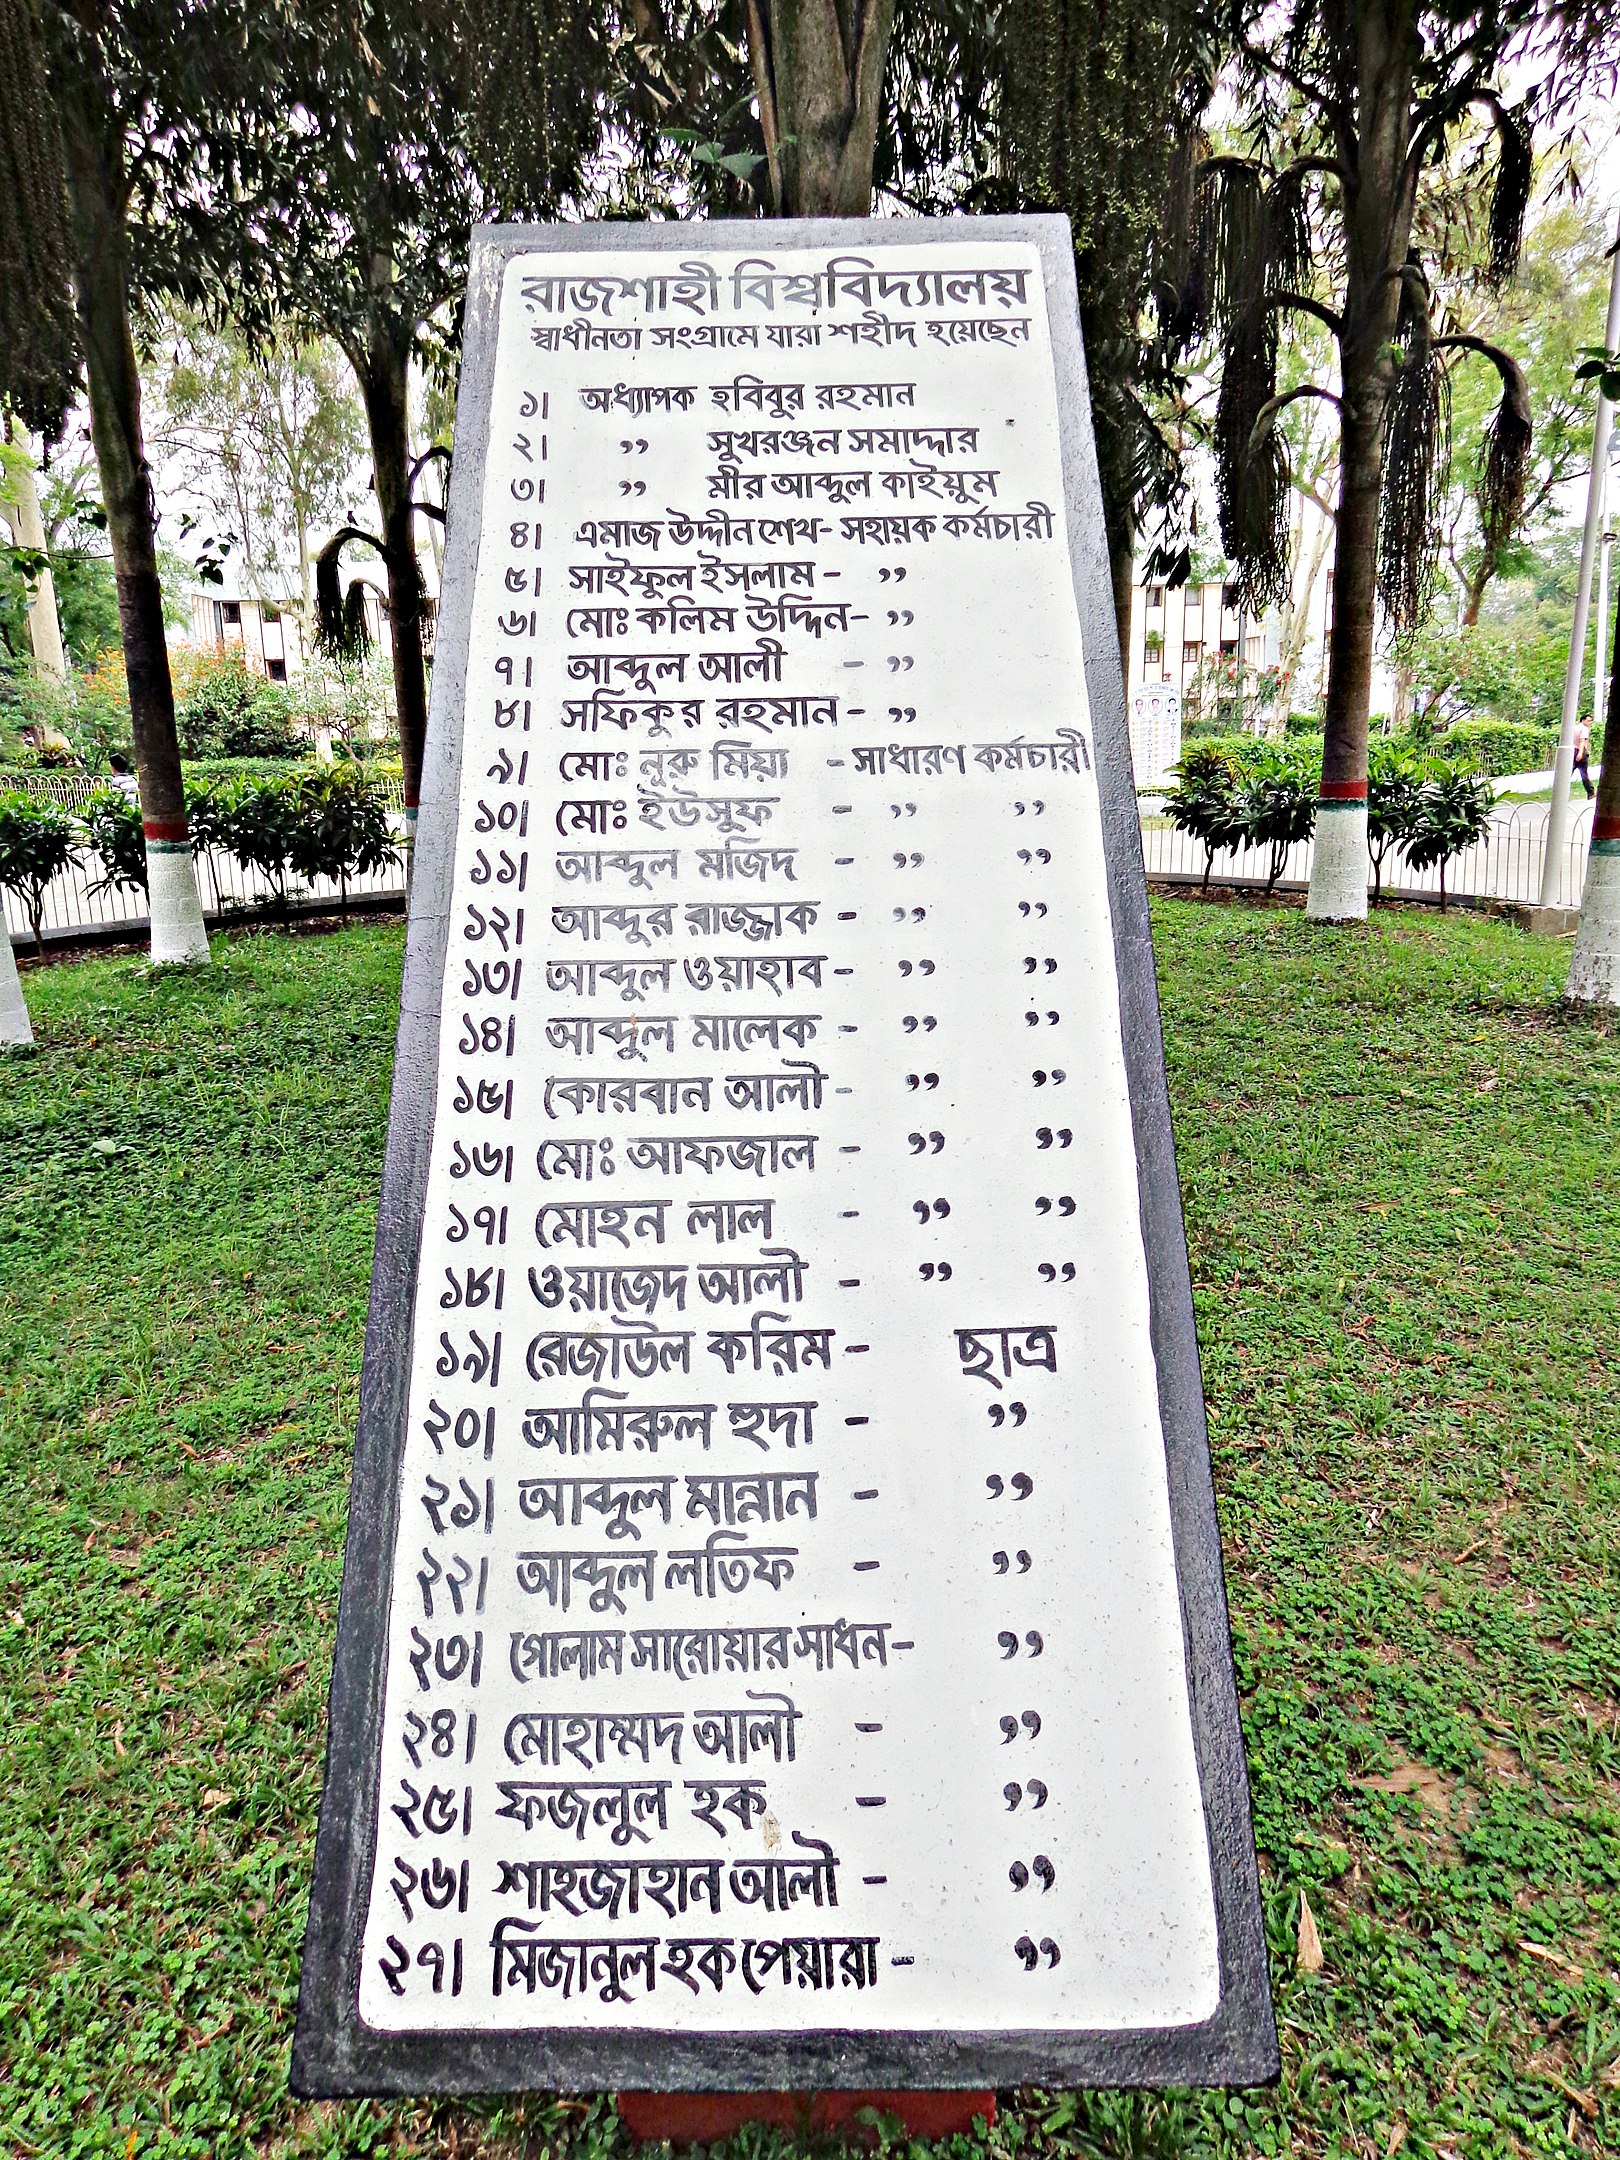 রাজশাহী বিশ্ববিদ্যালয়
স্বাধীনতা সংগ্রামে যারা শহীদ হয়েছেন
১। অধ্যাপক হবিবুর রহমান
২। ,, সুখরঞ্জন সমাদ্দার
৩। ,, মীর আব্দুল কাইয়ুম
৪। এমাজ উদ্দীন শেখ- সহায়ক কর্মচারী
৫। সাইফুল ইসলাম - ,,
৬। মোঃ কলিম উদ্দিন- ,,
৭। আব্দুল আলী - ,,
৮। সফিকুর রহমান - ,,
৯। মোঃ নূরু মিয়া - সাধারণ কর্মচারী
১০। মোঃ ইউসুফ - ,, ,,
১১। আব্দুল মজিদ - ,, ,,
১২। আব্দুর রাজ্জাক - ,, ,,
১৩। আব্দুল ওয়াহাব - ,, ,,
১৪। আব্দুল মালেক - ,, ,,
১৫। কোরবান আলী - ,, ,,
১৬। মোঃ আফজাল - ,, ,,
১৭। মোহন লাল - ,, ,,
১৮। ওয়াজেদ আলী - ,, ,,
১৯। রেজাউল করিম - ছাত্র
২০। আমিরুল হুদা - ,,
২১। আব্দুল মান্নান - ,,
২২। আব্দুল লতিফ - ,,
২৩। গোলাম সারোয়ার সাধন - ,,
২৪। মোহাম্মদ আলী - ,,
২৫। ফজলুল হক - ,,
২৬। শাহজাহান আলী - ,,
২৭। মিজানুল হক পেয়ারা - ,,